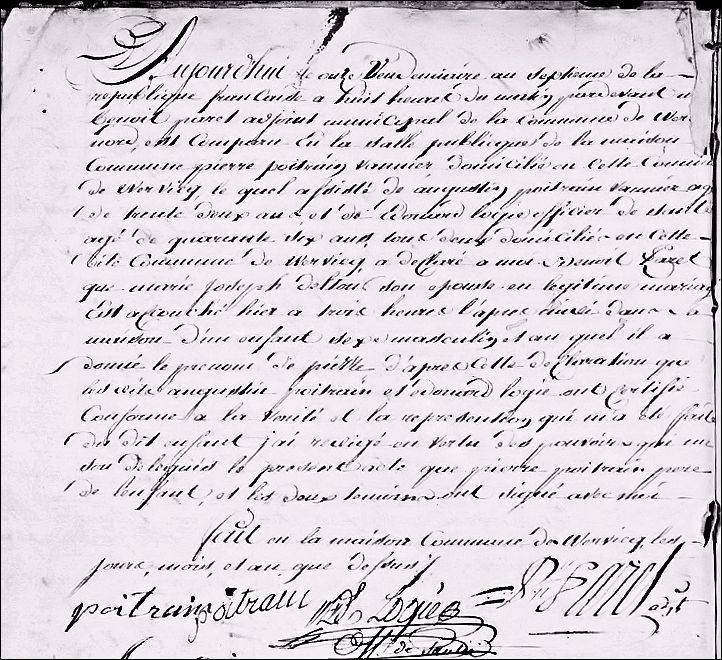 Aujourdhui le onze Vendemiaire an septieme de la
republique francaise a huit heures du matin pardevant m
benoit paret adjoint municipal de la Commune de Wer
nord, est Comparu En la salle publique de la maison
Commune pierre poitrain vannier, domicilié en Cette Comun
de Wervicq le quel assisté de augustin poitrain vannier agé
de trente deux ans, et de Edouard logie officier de santé
agé de quarante six ans, tous deux domiciliés en Cette
dite Commune de Wervicq a declaré a moi Benoit Paret
que marie joseph delton son epouse en legitime mariag
Est accouché hier a trois heures l'apres dinée dans la
maison d'un enfant sexe masculin et au quel il a
donné le prenom de pierre d'apres Cette declaration que
les dits augustin poitrain et edouard logie ont Certifié
Conforme a la verité et la representation qui m'a eté faite
du dit enfant j'ai redigé en vertu des pouvoirs qui me
son delegués le present acte que pierre poitrain pere
de l'enfant, et les deux temoins ont signé avec moi
fait en la maison Commune de Wervicq les
jours, mois, et an, que dessus
poitrain poitrain Logie Paret adjt
Off. de Santé